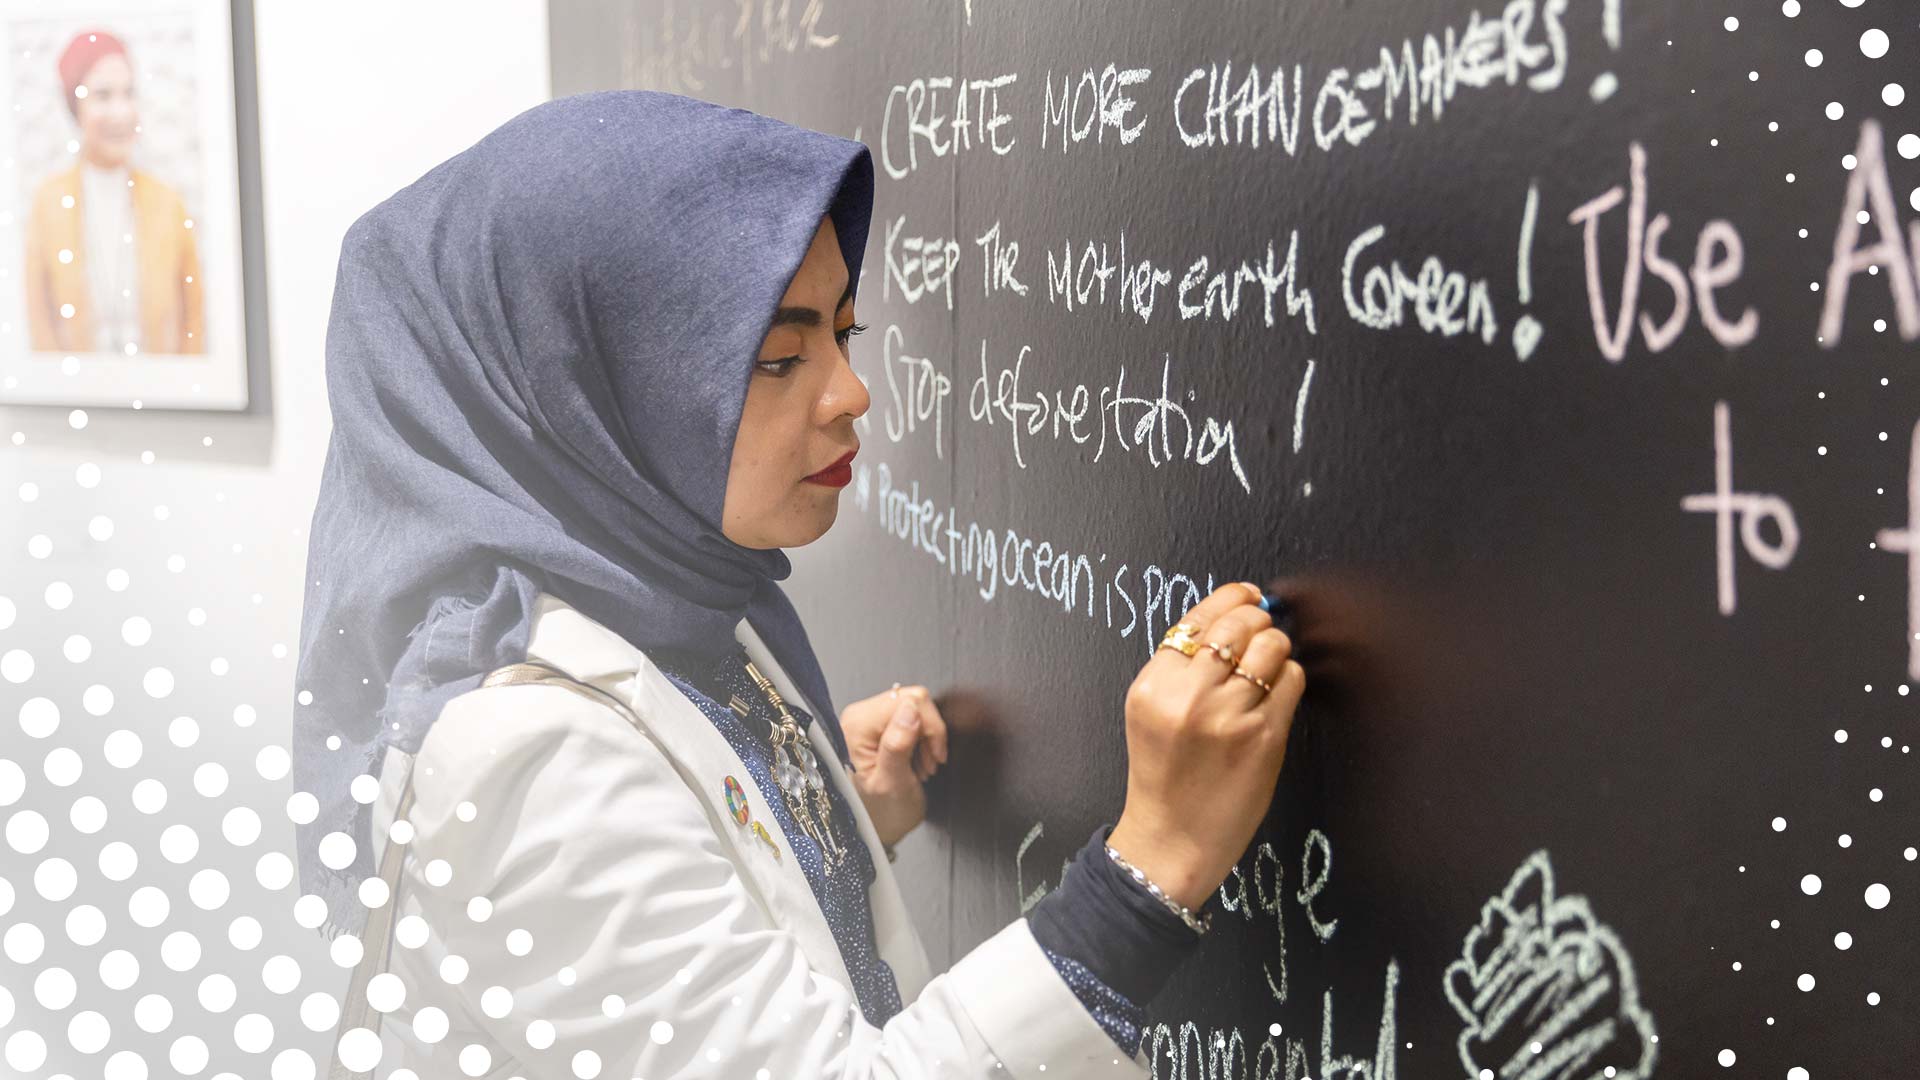 CREATE MORE CHANGEMAKERS!
KEEP THE MotherEarth Green!
STOP deforestation!
Protecting ocean is pro
Use
to